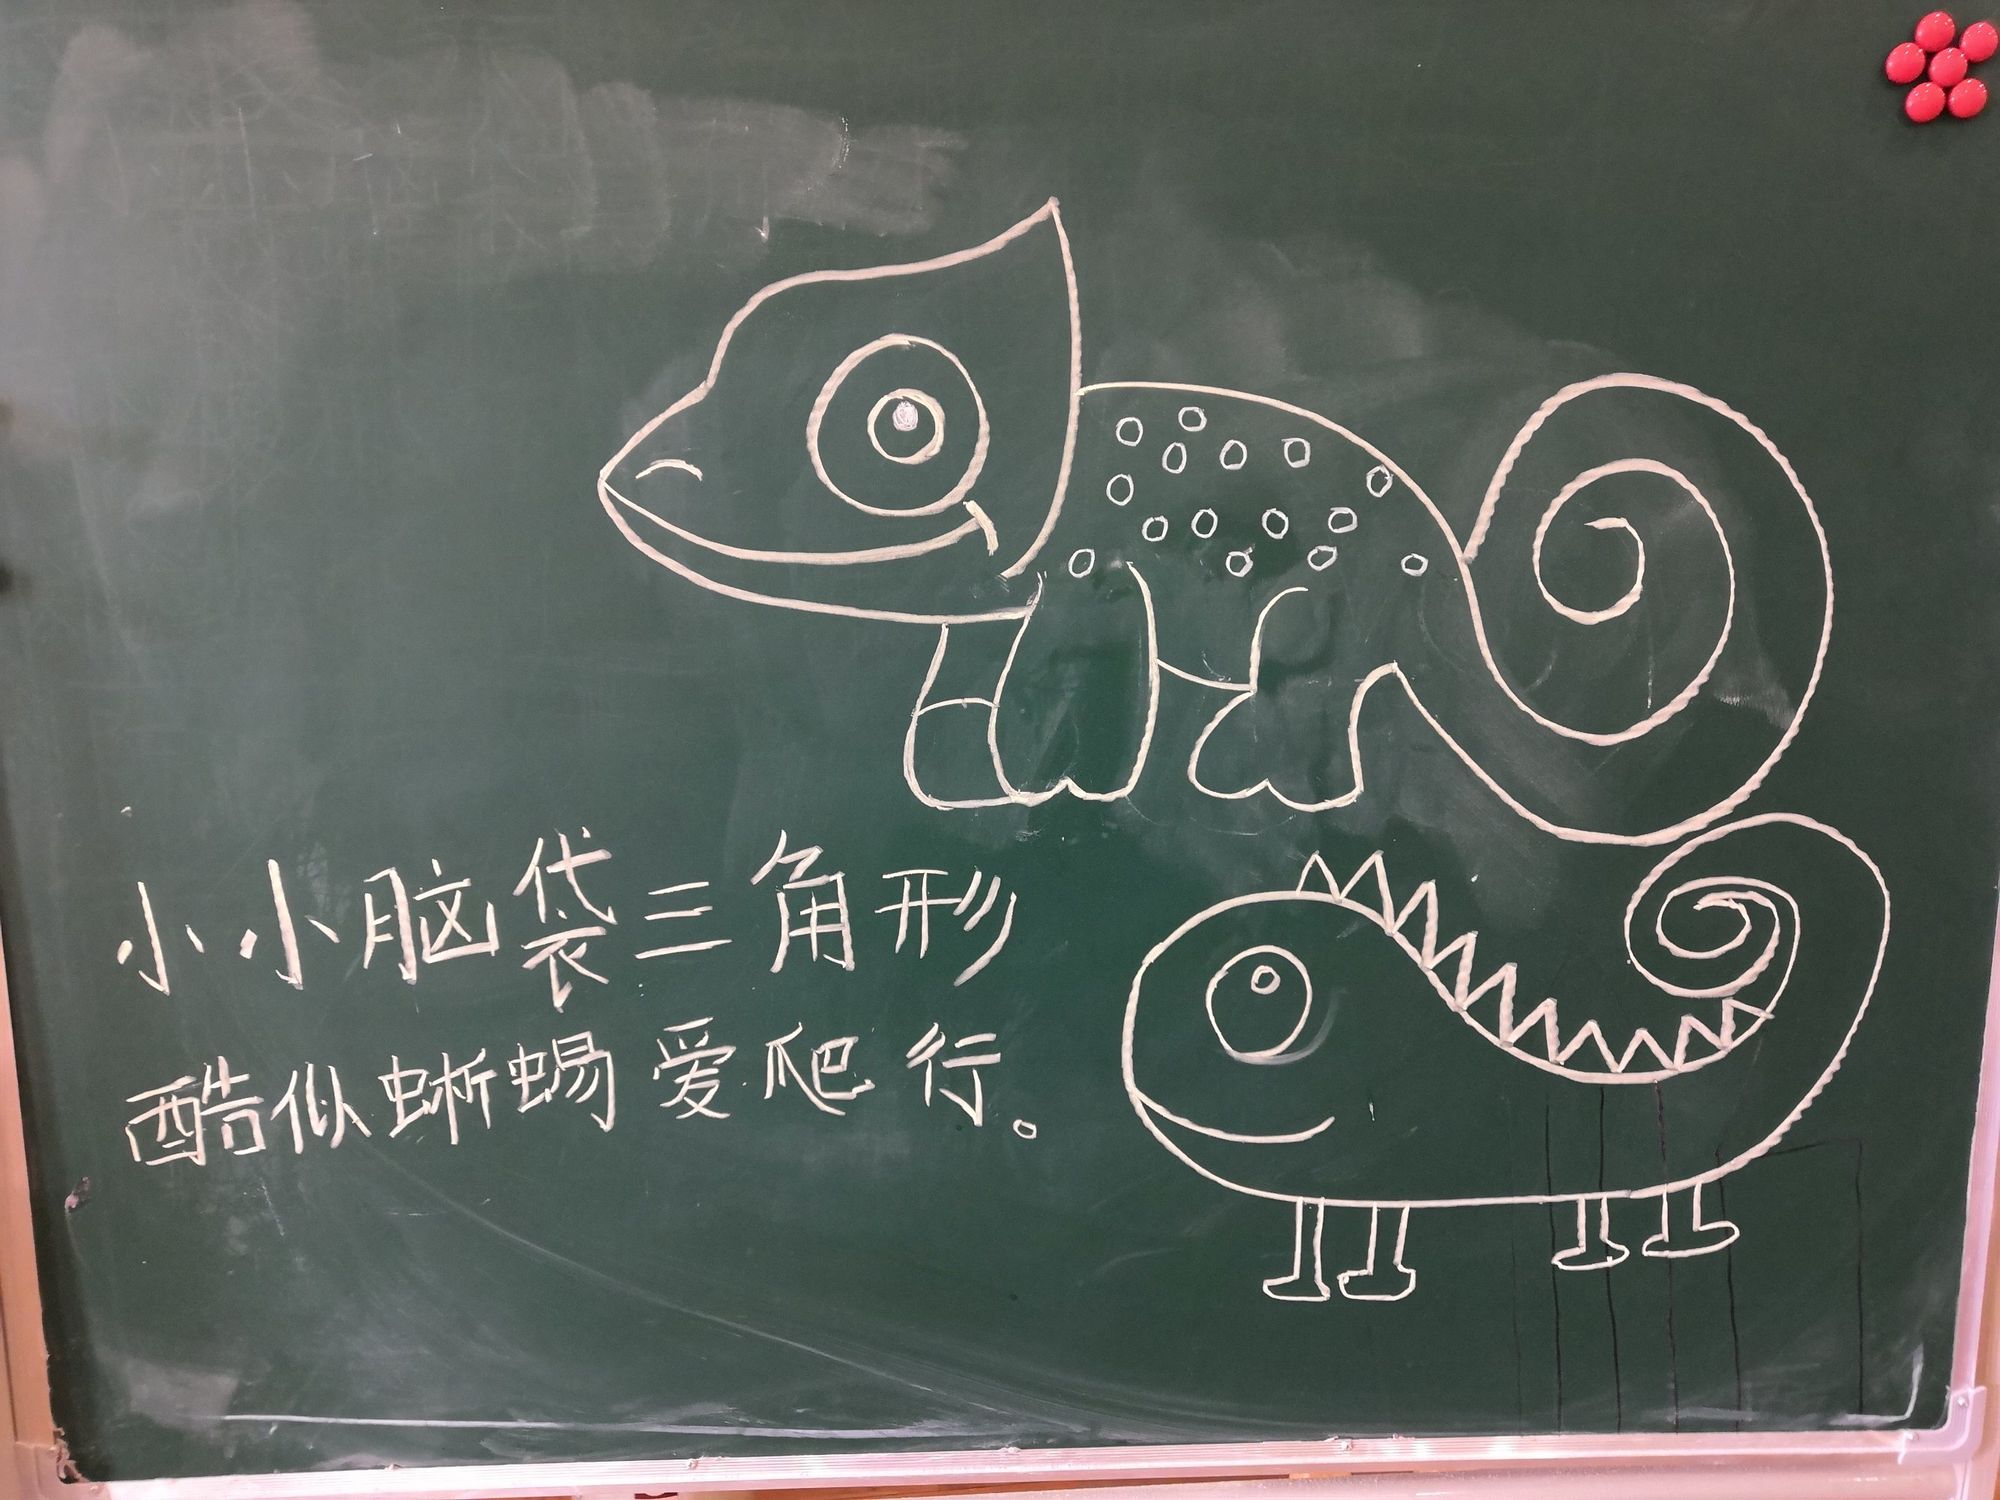 小小脑袋三角形
酷似蜥蜴爱爬行。